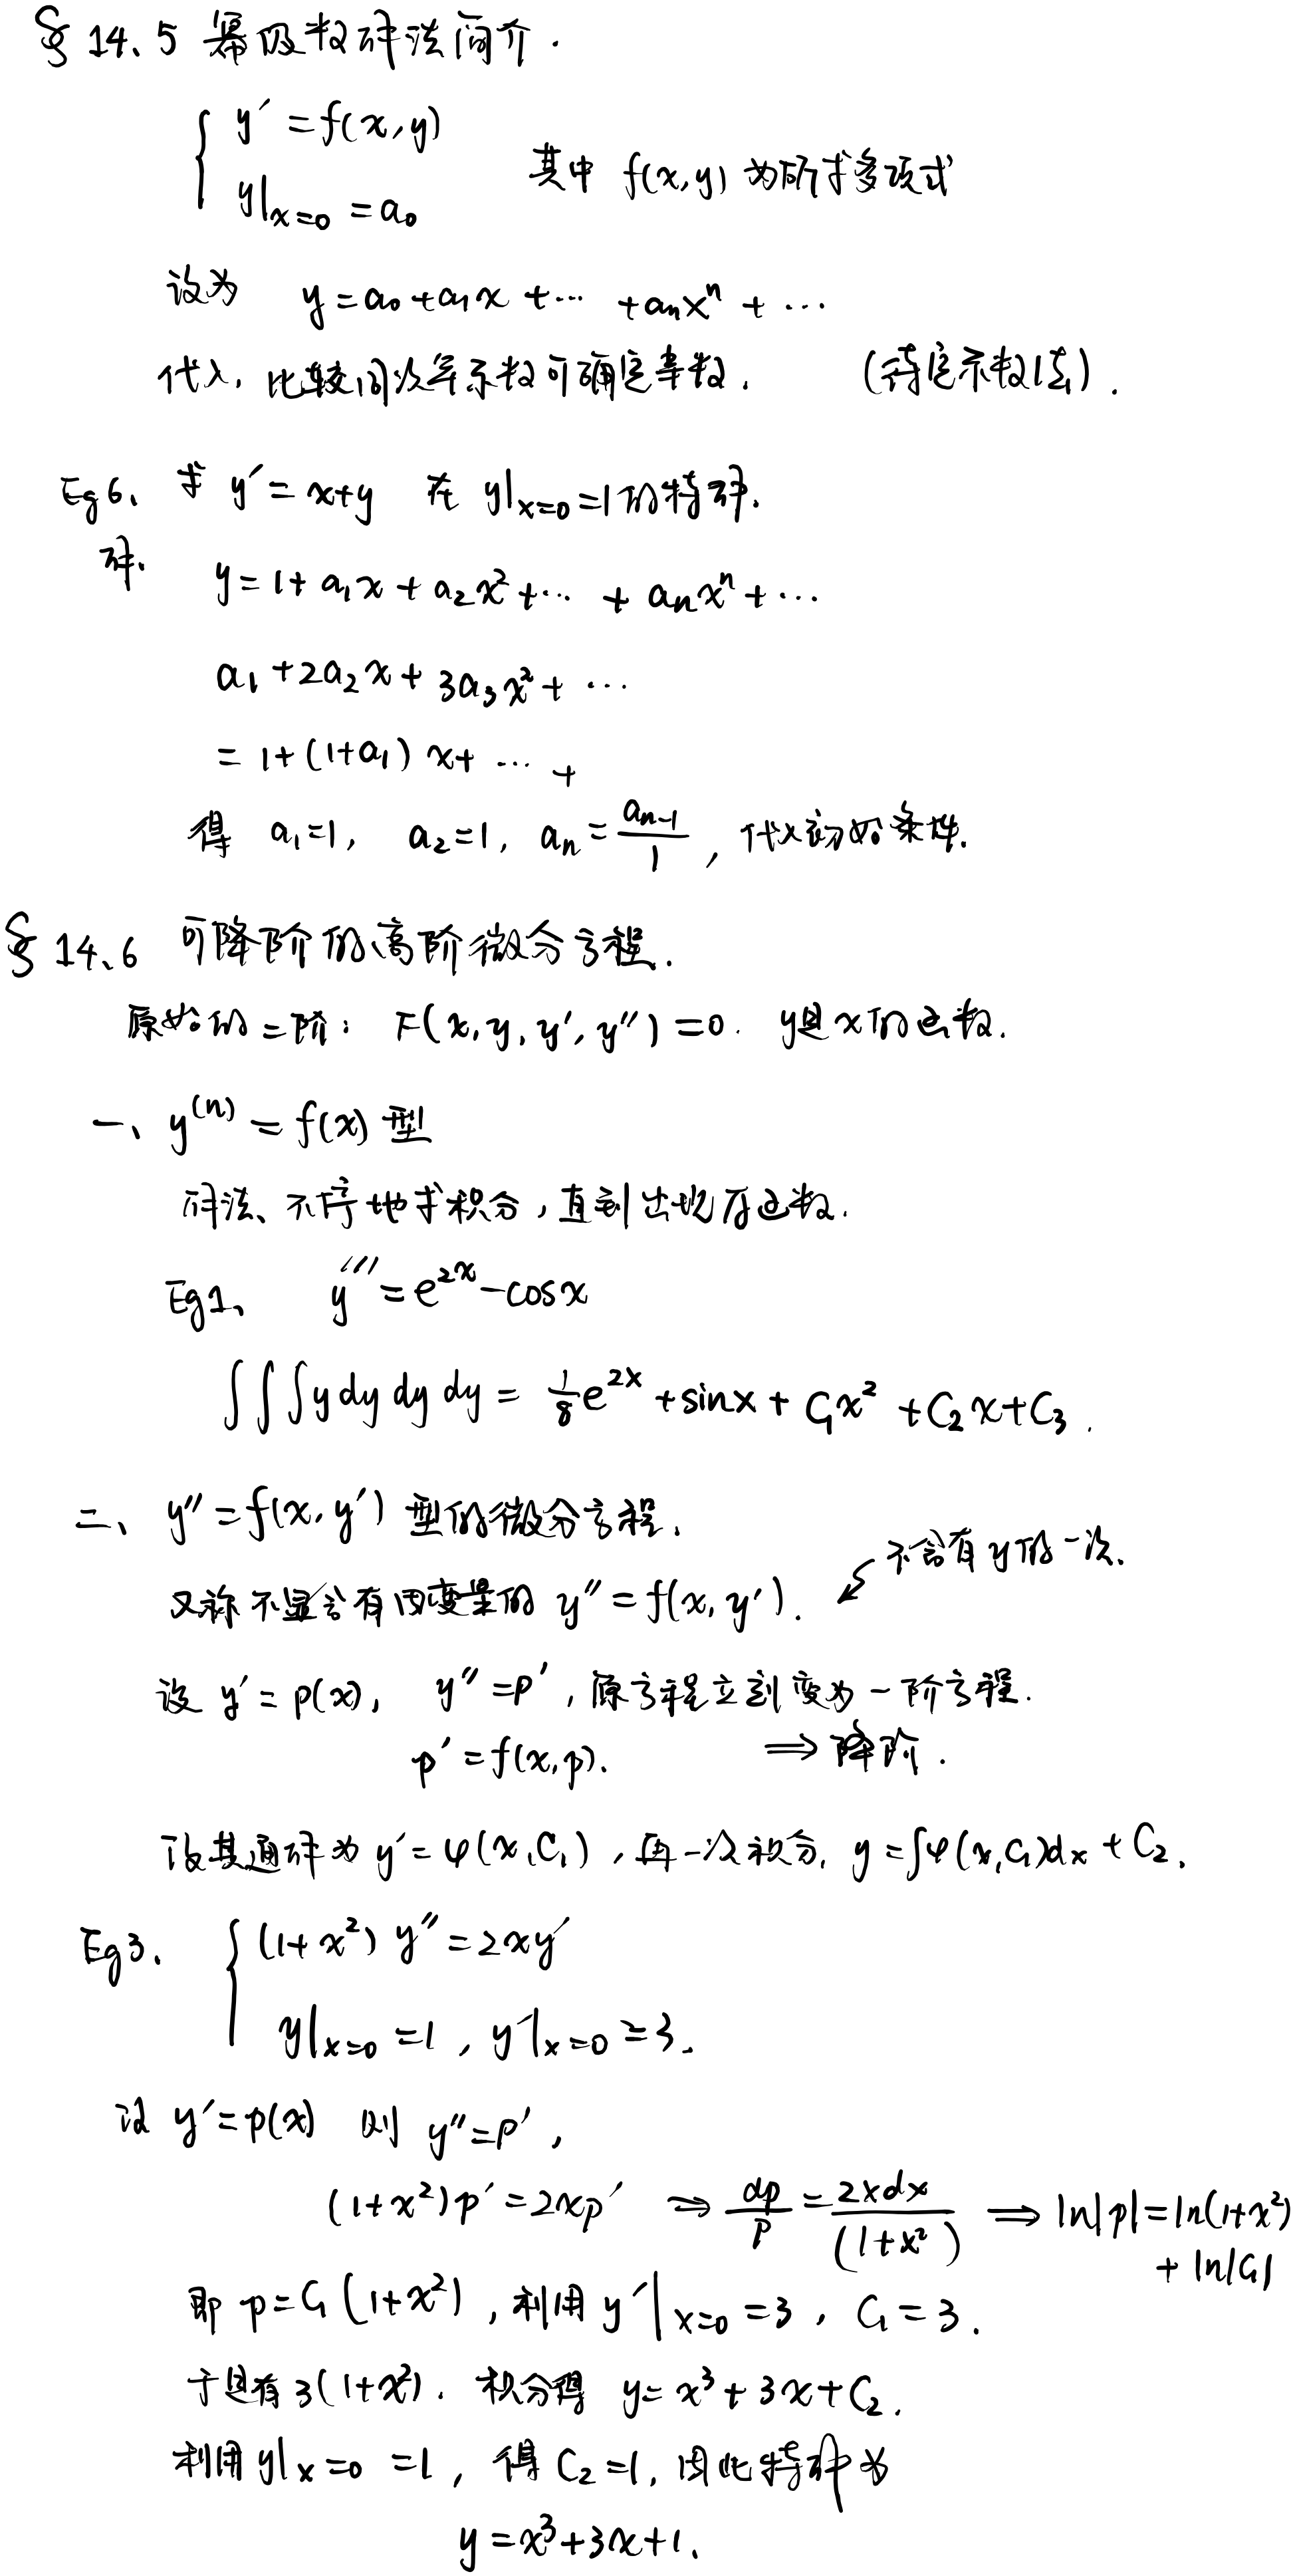 § 14.5 幂级数解法简介.
{ y′ = f(x,y)
y|x=0 = a₀ 其中 f(x,y) 为所求多项式
设为 y = a₀ + a₁x + ⋯ + aₙxⁿ + ⋯
代入, 比较同次幂系数可确定常数. (待定系数法).
Eg6、 求 y′ = x+y 在 y|x=0 = 1 的特解.
解、 y = 1 + a₁x + a₂x² + ⋯ + aₙxⁿ + ⋯
a₁ + 2a₂x + 3a₃x² + ⋯
= 1 + (1+a₁) x + ⋯ +
得 a₁=1, a₂=1, aₙ = aₙ₋₁/1 , 代入初始条件.
§ 14.6 可降阶的高阶微分方程.
原始的二阶: F(x, y, y′, y″) = 0. y是x的函数.
一、 y⁽ⁿ⁾ = f(x) 型
解法、不停地求积分, 直到出现原函数.
Eg1、 y‴ = e²ˣ − cosx
∫∫∫y dy dy dy = 1/8 e²ˣ + sinx + C₁x² + C₂x + C₃ .
二、 y″ = f(x, y′) 型的微分方程.
不含有y的一次.
又称不显含有因变量的 y″ = f(x, y′).
设 y′ = p(x), y″ = p′, 原方程立刻变为一阶方程.
p′ = f(x,p). ⟹ 降阶.
设其通解为 y′ = φ(x,C₁), 再一次积分, y = ∫φ(x,C₁)dx + C₂.
Eg3. { (1+x²) y″ = 2xy′
y|x=0 = 1 , y′|x=0 = 3.
设 y′ = p(x) 则 y″ = p′ ,
(1+x²)p′ = 2xp′ ⟹ dp/p = 2xdx/(1+x²) ⟹ ln|p| = ln(1+x²)
+ ln|C₁|
即 p = C₁(1+x²) , 利用 y′|x=0 = 3 , C₁ = 3.
于是有 3(1+x²). 积分得 y = x³ + 3x + C₂.
利用 y|x=0 = 1, 得 C₂ = 1, 因此特解为
y = x³ + 3x + 1.